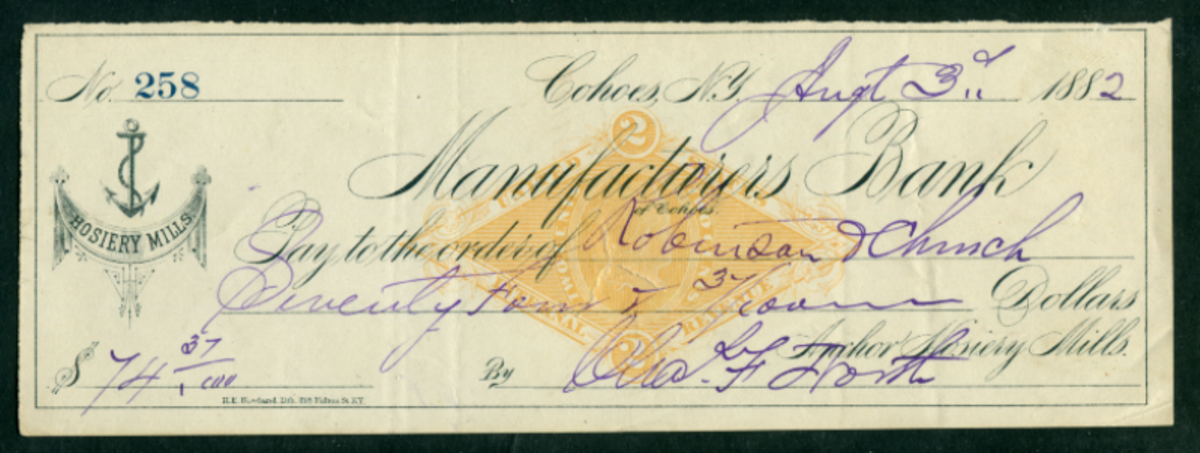 No. 258
Cohoes, N.Y. Augt 3d 1882
2
Manufacturers Bank
of Cohoes.
HOSIERY MILLS
Pay to the order of Robinson & Church
Seventy Four & 37/100 Dollars
Anchor Hosiery Mills.
$ 74 37/100 By Chas. F North
2